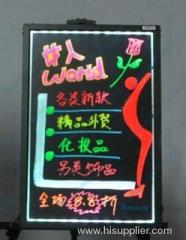 #人
World
各类新款
精品外贸
化妆品
另类饰品
全场8.8折
hisupplier.com